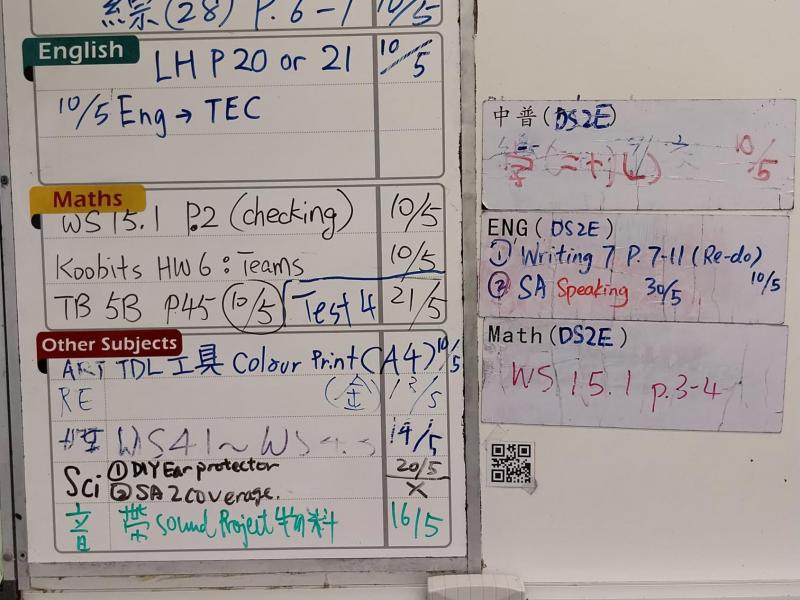 綜(28) P.6-7 10/5
English
LH P20 or 21 10/5
10/5 Eng → TEC
Maths
WS 15.1 P.2 (checking) 10/5
Koobits HW6 : Teams 10/5
TB 5B P45 10/5 Test 4 21/5
Other Subjects
ART TDL 工具 Colour Print (A4) 10/5
RE (金) 13/5
WS4.1~WS4.3 14/5
Sci ① DIY Ear protector 20/5
② SA2 coverage. X
音 帶 Sound Project 物料 16/5
中普(DS2E)
10/5
ENG (DS2E)
① Writing 7 P.7-11 (Re-do) 10/5
② SA Speaking 30/5
Math (DS2E)
WS 15.1 p.3-4